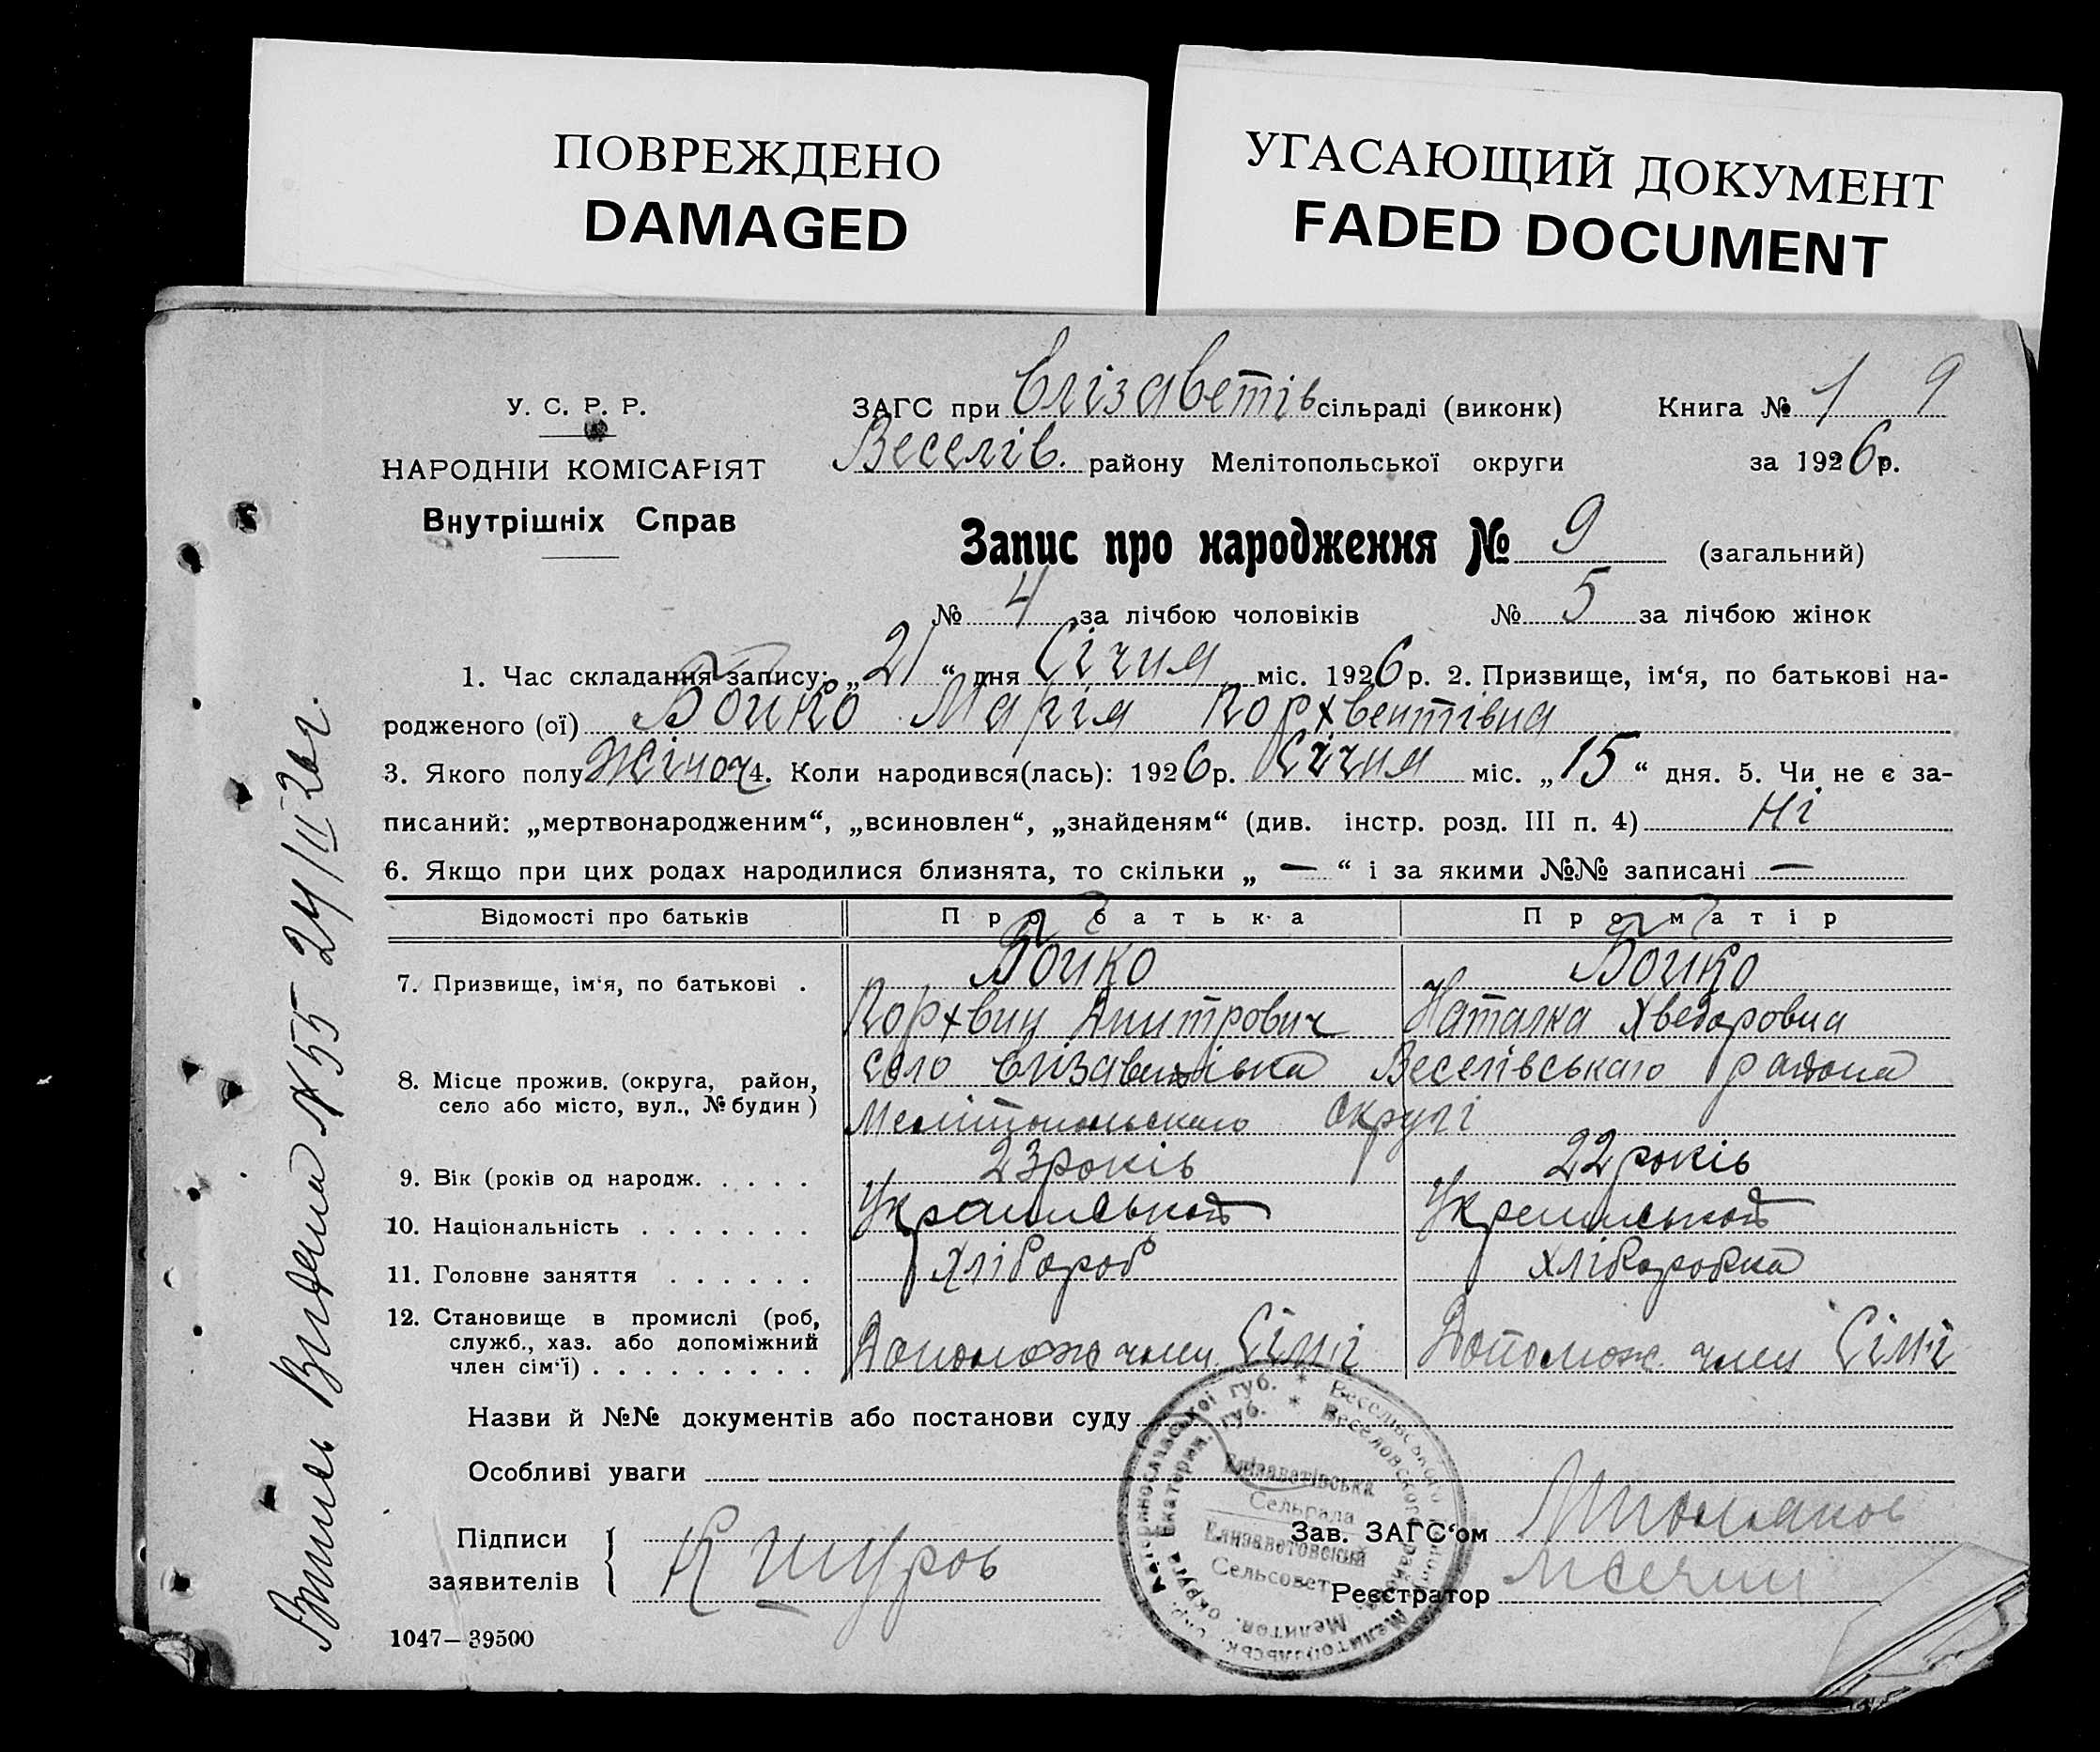 ПОВРЕЖДЕНО
DAMAGED
УГАСАЮЩИЙ ДОКУМЕНТ
FADED DOCUMENT
У. С. Р. Р.
НАРОДНІЙ КОМІСАРІЯТ
Внутрішніх Справ
ЗАГС при Єлізаветів сільраді (виконк) Книга № 1 9
Веселів. району Мелітопольської округи за 1926р.
Запис про народження № 9 (загальний)
№ 4 за лічбою чоловіків № 5 за лічбою жінок
1. Час складання запису: „21“ дня Січня міс. 1926р. 2. Призвище, ім‘я, по батькові на-
родженого (ої) Бойко Марія Порхвентівна
3. Якого полу Жіноч 4. Коли народився(лась): 1926р. Січня міс. „15“ дня. 5. Чи не є за-
писаний: „мертвонародженим“, „всиновлен“, „знайденям“ (див. інстр. розд. III п. 4) Ні
6. Якщо при цих родах народилися близнята, то скільки „ — “ і за якими №№ записані —
Відомості про батьків Про батька Про матір
7. Призвище, ім‘я, по батькові . Бойко Бойко
Порхвин Дмитрович Наталка Хведоровна
8. Місце прожив. (округа, район, село або місто, вул., № будин) село Єлізаветівка Веселівського района
Мелітопольского округі
9. Вік (років од народж. . . . . 23 років 22 років
10. Національність . . . . . . . Украинськой Украинськой
11. Головне заняття . . . . . . Хлібороб Хлібаробка
12. Становище в промислі (роб, служб., хаз. або допоміжний член сім‘ї) . . . . . . . . . Допомож член Сімї Допомож. член Сімї
Назви й №№ документів або постанови суду
Особливі уваги
Підписи заявителів
Зав. ЗАГС‘ом
Реєстратор
1047—39500
Єлізаветівська
Сельрада
Елизаветовский
Сельсовет
Випись Видана №55 24/II 26г.